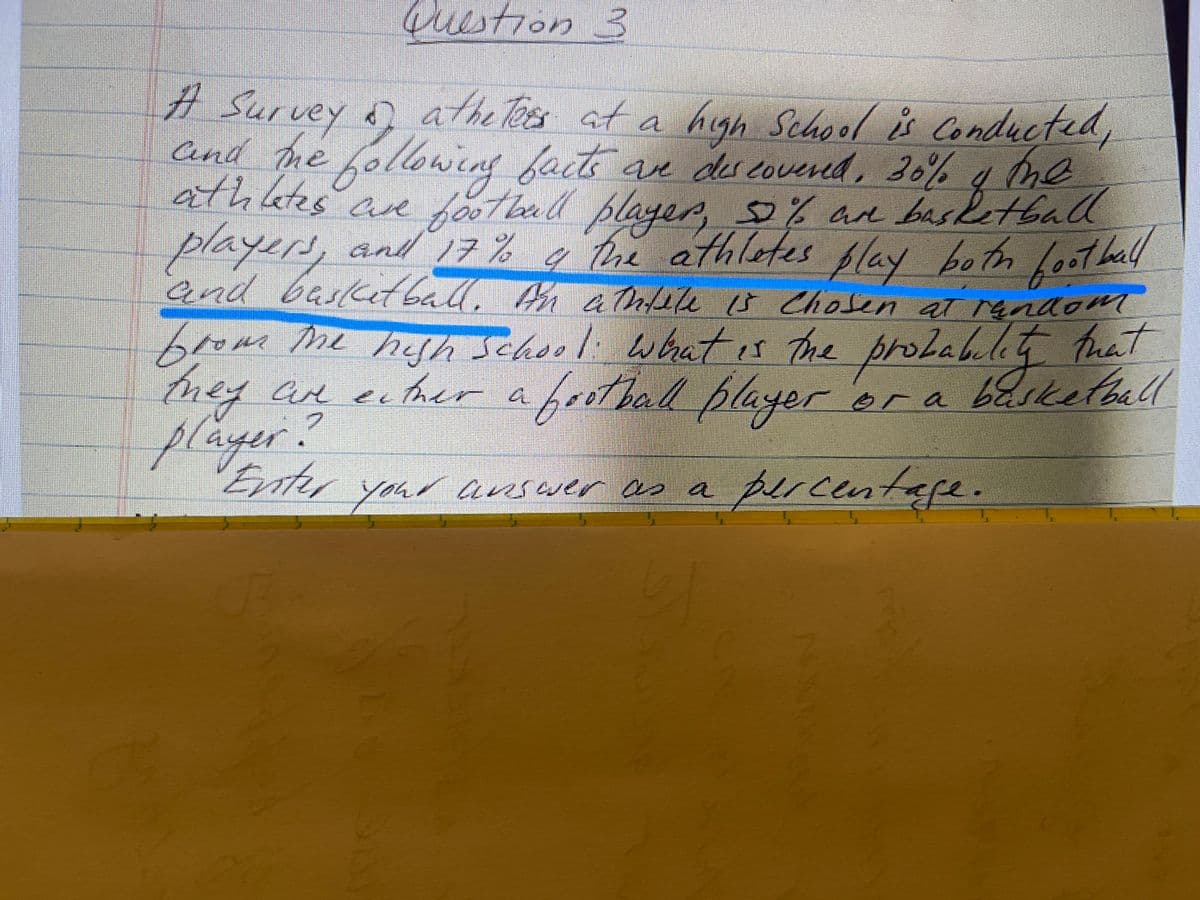 Question 3
A Survey of atheletes at a high School is Conducted,
and the following facts are discovered. 30% of the
athletes are football players, % are basketball
players, and 17% of the athletes play both football
and basketball. An athlete is Chosen at random
from the high School: what is the probability that
they are either a football player or a basketball
player?
Enter your answer as a percentage.